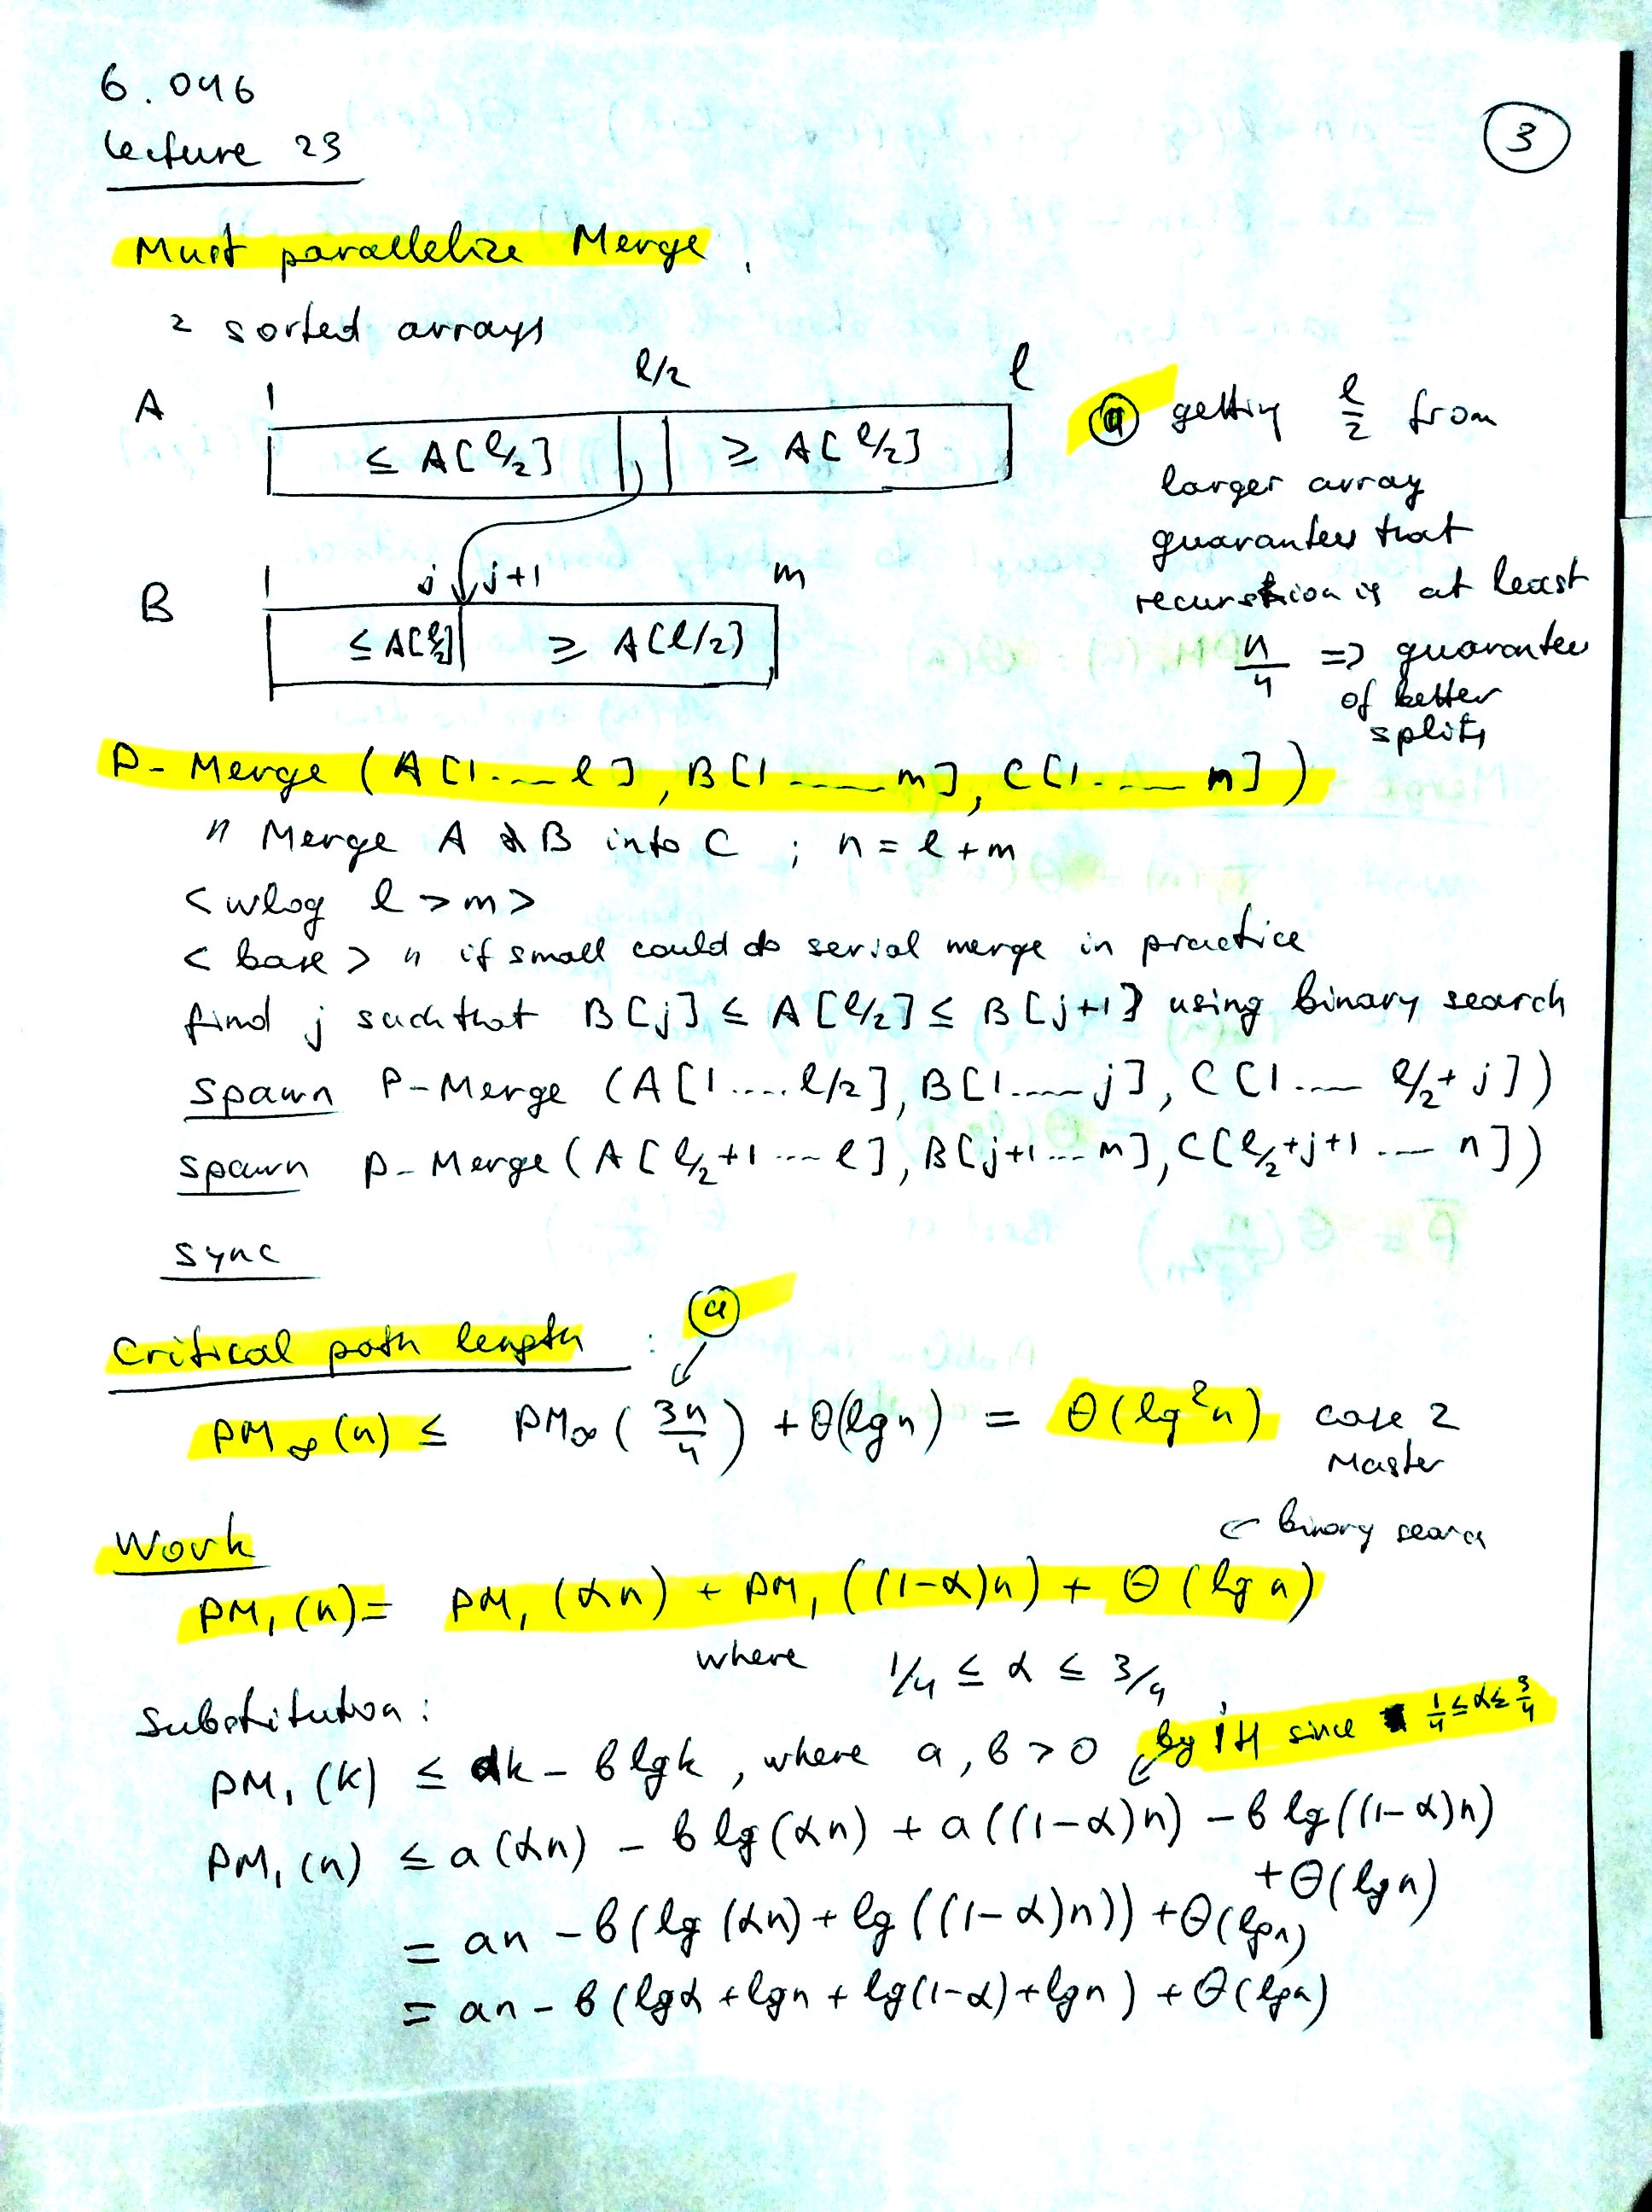 6.046
Lecture 23
3
Must parallelize Merge.
2 sorted arrays
A
1
l/2
l
≤ A[l/2]
≥ A[l/2]
B
1
j
j+1
m
≤ A[l/2]
≥ A[l/2]
ⓐ getting l/2 from
larger array
guarantees that
recursion is at least
n/4 => guarantee
of better
splits
P-Merge (A[1....l], B[1......m], C[1.....n])
" Merge A & B into C ; n = l+m
<wlog l > m>
<base> " if small could do serial merge in practice
find j such that B[j] ≤ A[l/2] ≤ B[j+1] using binary search
spawn P-Merge (A[1....l/2], B[1.....j], C[1.... l/2+j])
spawn P-Merge (A[l/2+1....l], B[j+1...m], C[l/2+j+1.... n])
sync
Critical path length :
ⓐ
PM∞(n) ≤ PM∞(3n/4) + Θ(lgn) = Θ(lg²n) case 2
Master
Work
← binary search
PM₁(n) = PM₁(αn) + PM₁((1-α)n) + Θ(lg n)
where 1/4 ≤ α ≤ 3/4
Substitution:
by IH since 1/4 ≤ α ≤ 3/4
PM₁(k) ≤ ak - b lgk, where a, b > 0
PM₁(n) ≤ a(αn) - b lg(αn) + a((1-α)n) - b lg((1-α)n)
+ Θ(lgn)
= an - b(lg(αn) + lg((1-α)n)) + Θ(lgn)
= an - b(lgα + lgn + lg(1-α) + lgn) + Θ(lgn)